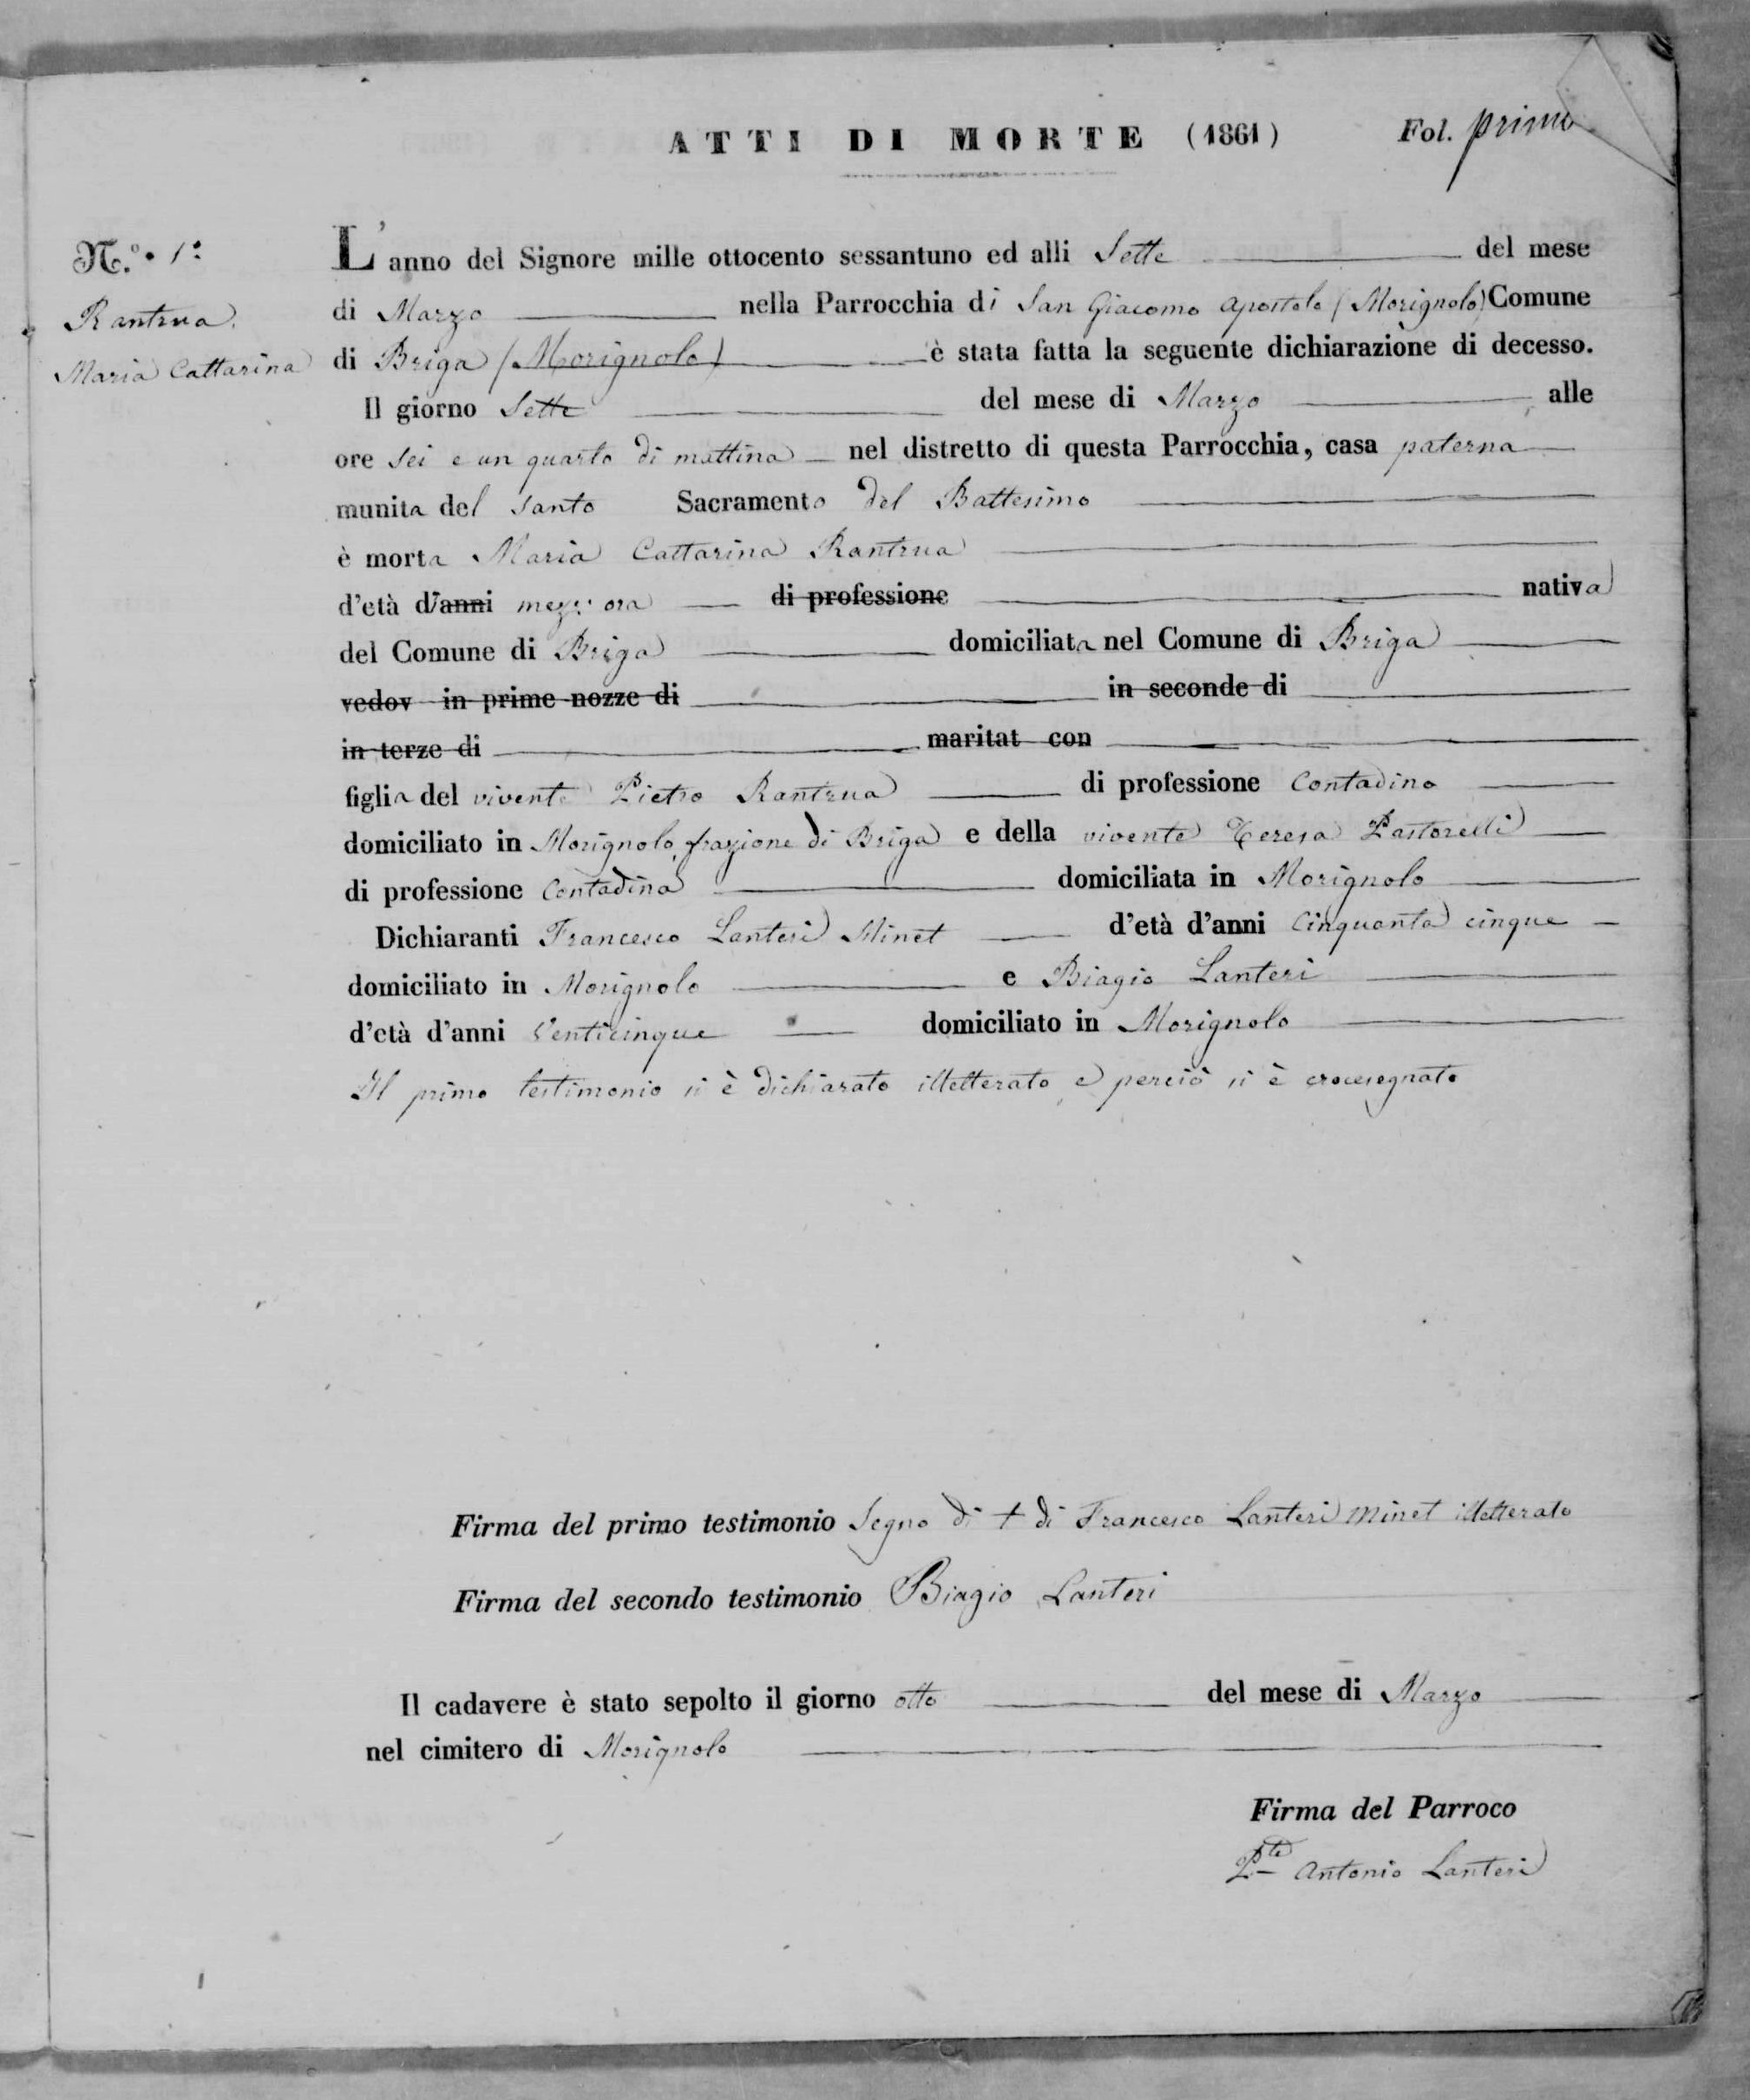 ATTI DI MORTE (1861) Fol. primo
N.º 1º
Rantrua
Maria Cattarina
L'anno del Signore mille ottocento sessantuno ed alli Sette del mese
di Marzo nella Parrocchia di San Giacomo apostolo (Morignolo) Comune
di Briga (Morignolo) è stata fatta la seguente dichiarazione di decesso.
Il giorno Sette del mese di Marzo alle
ore sei e un quarto di mattina nel distretto di questa Parrocchia, casa paterna
munita del santo Sacramento del Battesimo
è morta Maria Cattarina Rantrua
d'età d'anni mezz'ora di professione nativa
del Comune di Briga domiciliata nel Comune di Briga
vedov in prime nozze di in seconde di
in terze di maritat con
figlia del vivente Pietro Rantrua di professione Contadino
domiciliato in Morignolo frazione di Briga e della vivente Teresa Pastorelli
di professione Contadina domiciliata in Morignolo
Dichiaranti Francesco Lanteri Minet d'età d'anni Cinquanta cinque
domiciliato in Morignolo e Biagio Lanteri
d'età d'anni Venticinque domiciliato in Morignolo
Il primo testimonio si è dichiarato illetterato e perciò si è crocesegnato
Firma del primo testimonio Segno di + di Francesco Lanteri Minet illetterato
Firma del secondo testimonio Biagio Lanteri
Il cadavere è stato sepolto il giorno otto del mese di Marzo
nel cimitero di Morignolo
Firma del Parroco
Pte Antonio Lanteri